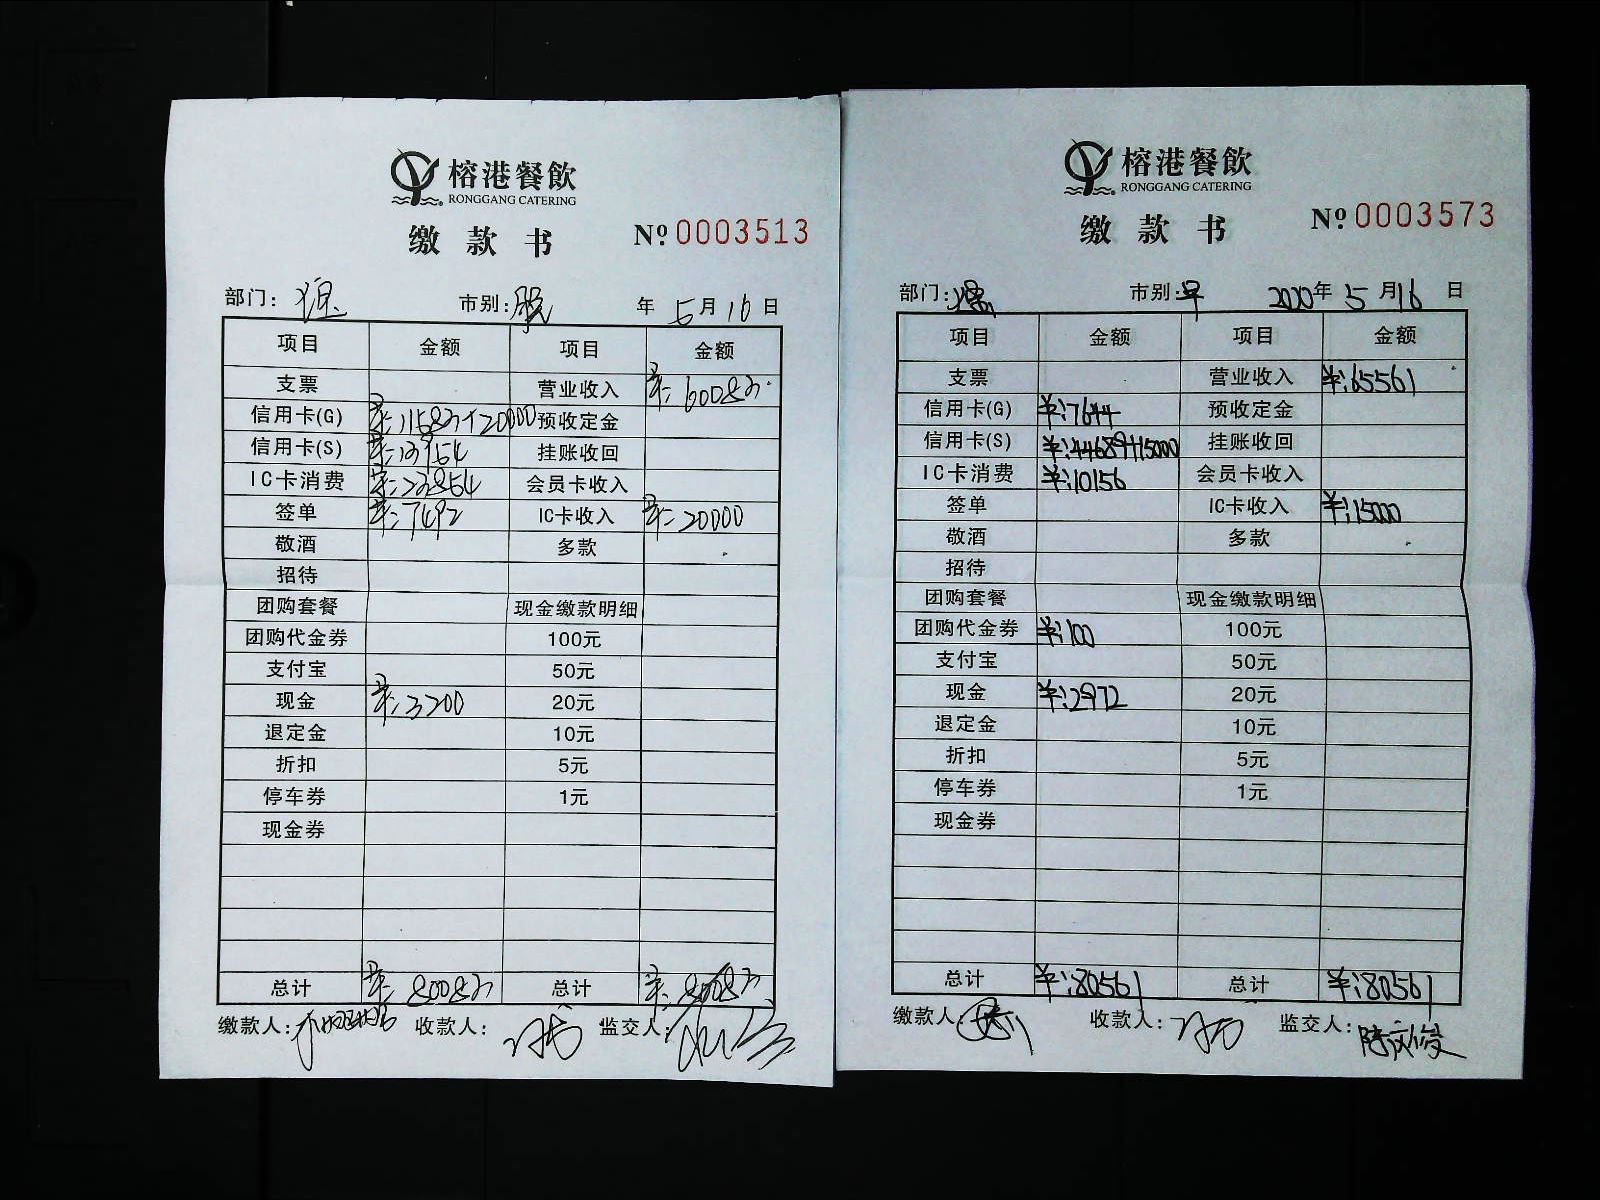 榕港餐飲
RONGGANG CATERING
缴款书 № 0003513
部门: 市别: 年 5月16日
项目 金额 项目 金额
支票 营业收入 ¥:60083
信用卡(G) ¥:11583+20000 预收定金
信用卡(S) ¥:13954 挂账收回
IC卡消费 ¥:23854 会员卡收入
签单 ¥:7492 IC卡收入 ¥:20000
敬酒 多款
招待
团购套餐 现金缴款明细
团购代金券 100元
支付宝 50元
现金 ¥:3200 20元
退定金 10元
折扣 5元
停车券 1元
现金券
总计 ¥:80083 总计 ¥:80083
缴款人: 收款人: 监交人:
榕港餐飲
RONGGANG CATERING
缴款书 № 0003573
部门: 市别:早 2020年5月16日
项目 金额 项目 金额
支票 营业收入 ¥:65561
信用卡(G) ¥:7644 预收定金
信用卡(S) ¥:44689+15000 挂账收回
IC卡消费 ¥:10156 会员卡收入
签单 IC卡收入 ¥:15000
敬酒 多款
招待
团购套餐 现金缴款明细
团购代金券 ¥:100 100元
支付宝 50元
现金 ¥:2972 20元
退定金 10元
折扣 5元
停车券 1元
现金券
总计 ¥:80561 总计 ¥:80561
缴款人: 收款人: 监交人:陈文俊